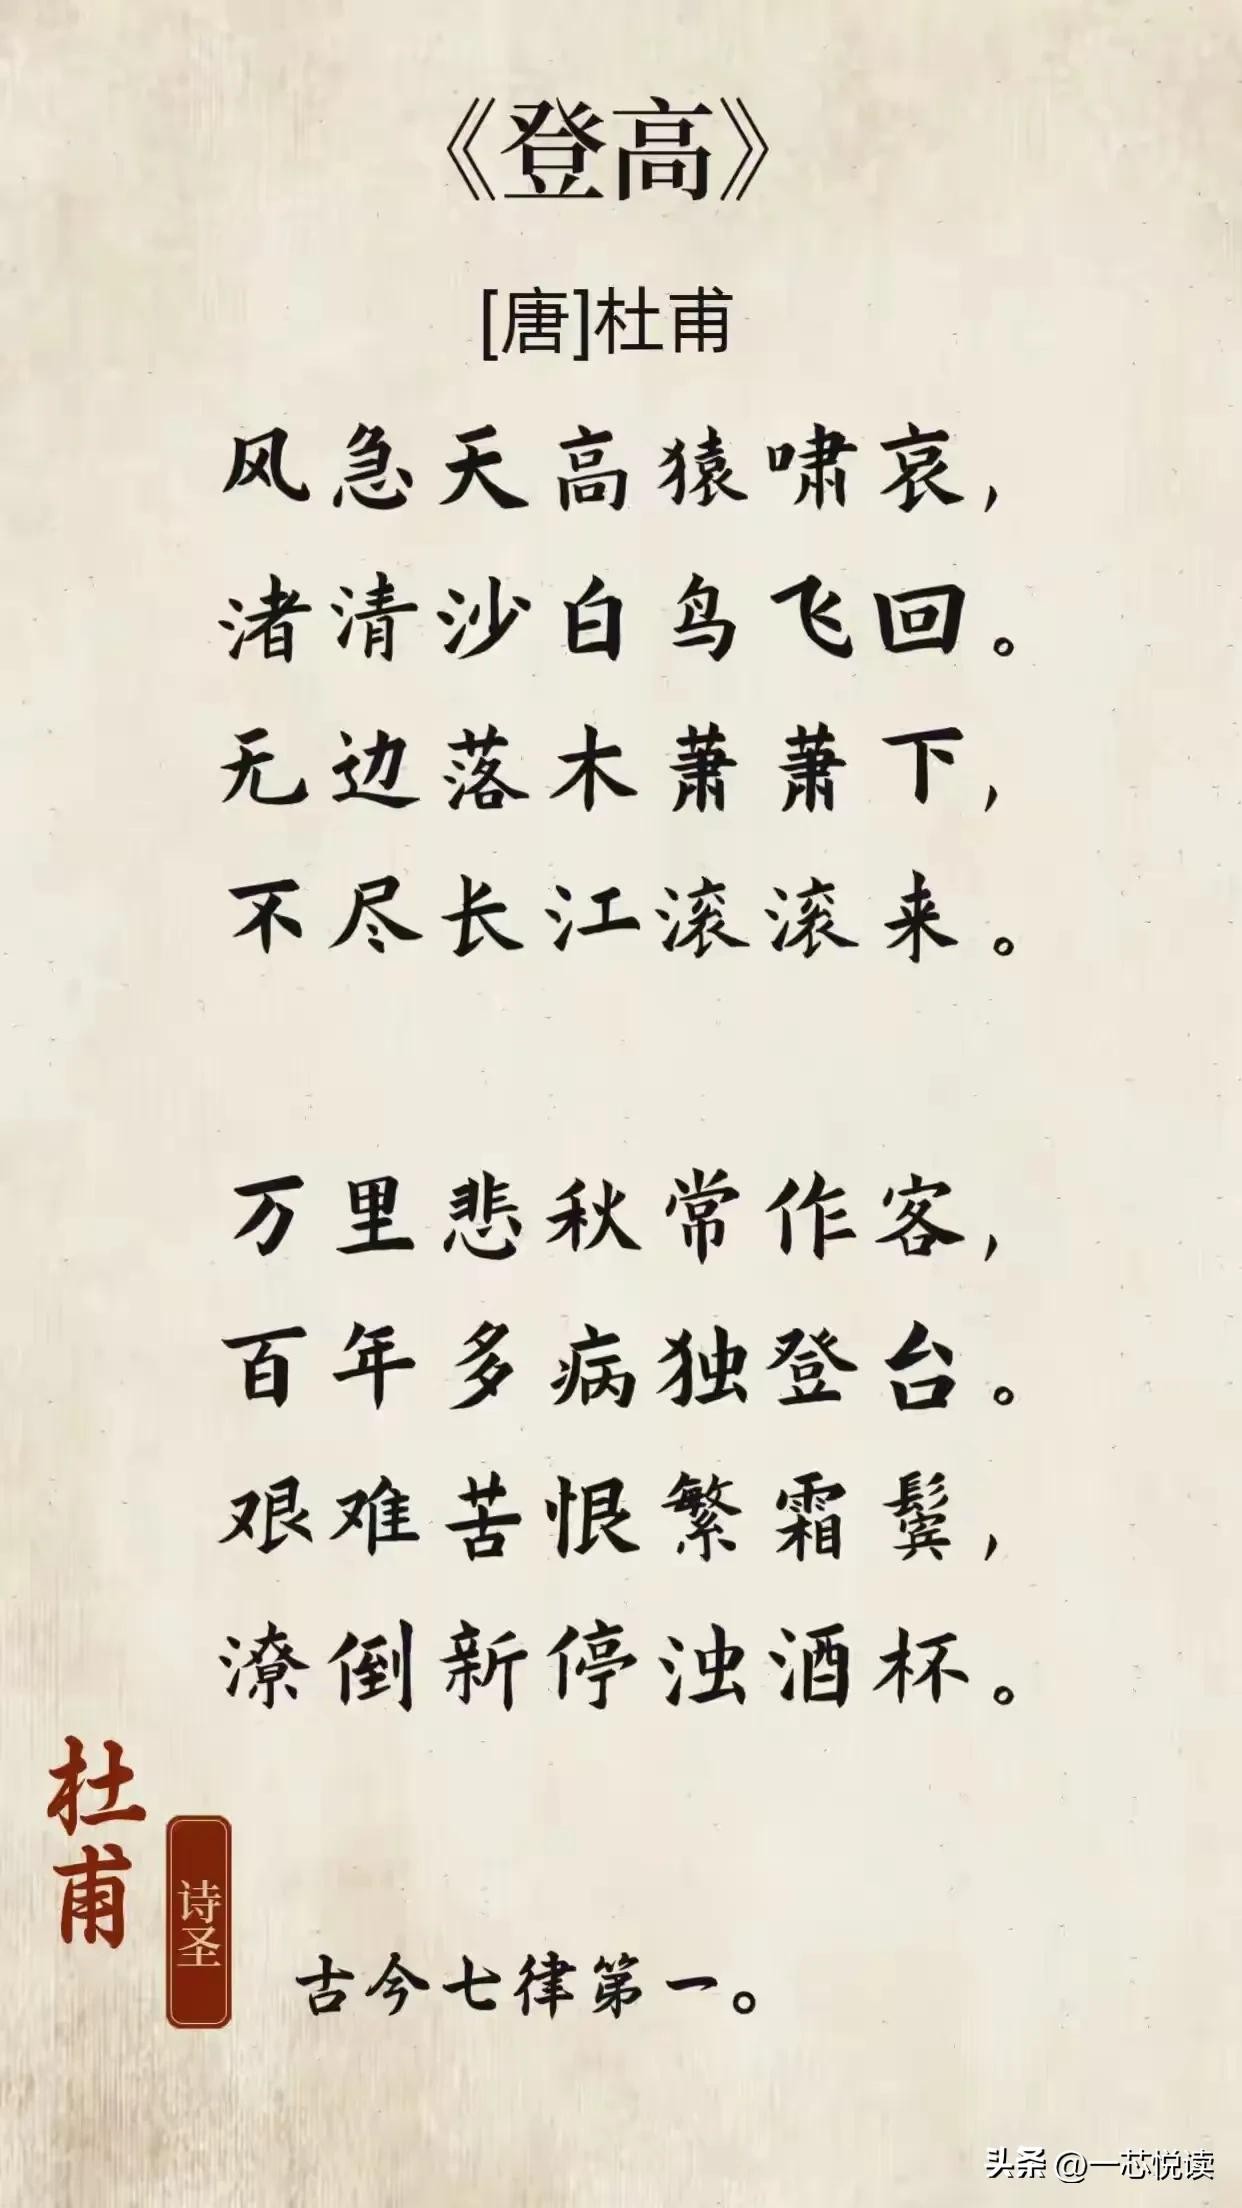 《登高》
[唐]杜甫
风急天高猿啸哀，
渚清沙白鸟飞回。
无边落木萧萧下，
不尽长江滚滚来。
万里悲秋常作客，
百年多病独登台。
艰难苦恨繁霜鬓，
潦倒新停浊酒杯。
杜甫
诗圣
古今七律第一。
头条 @一芯悦读